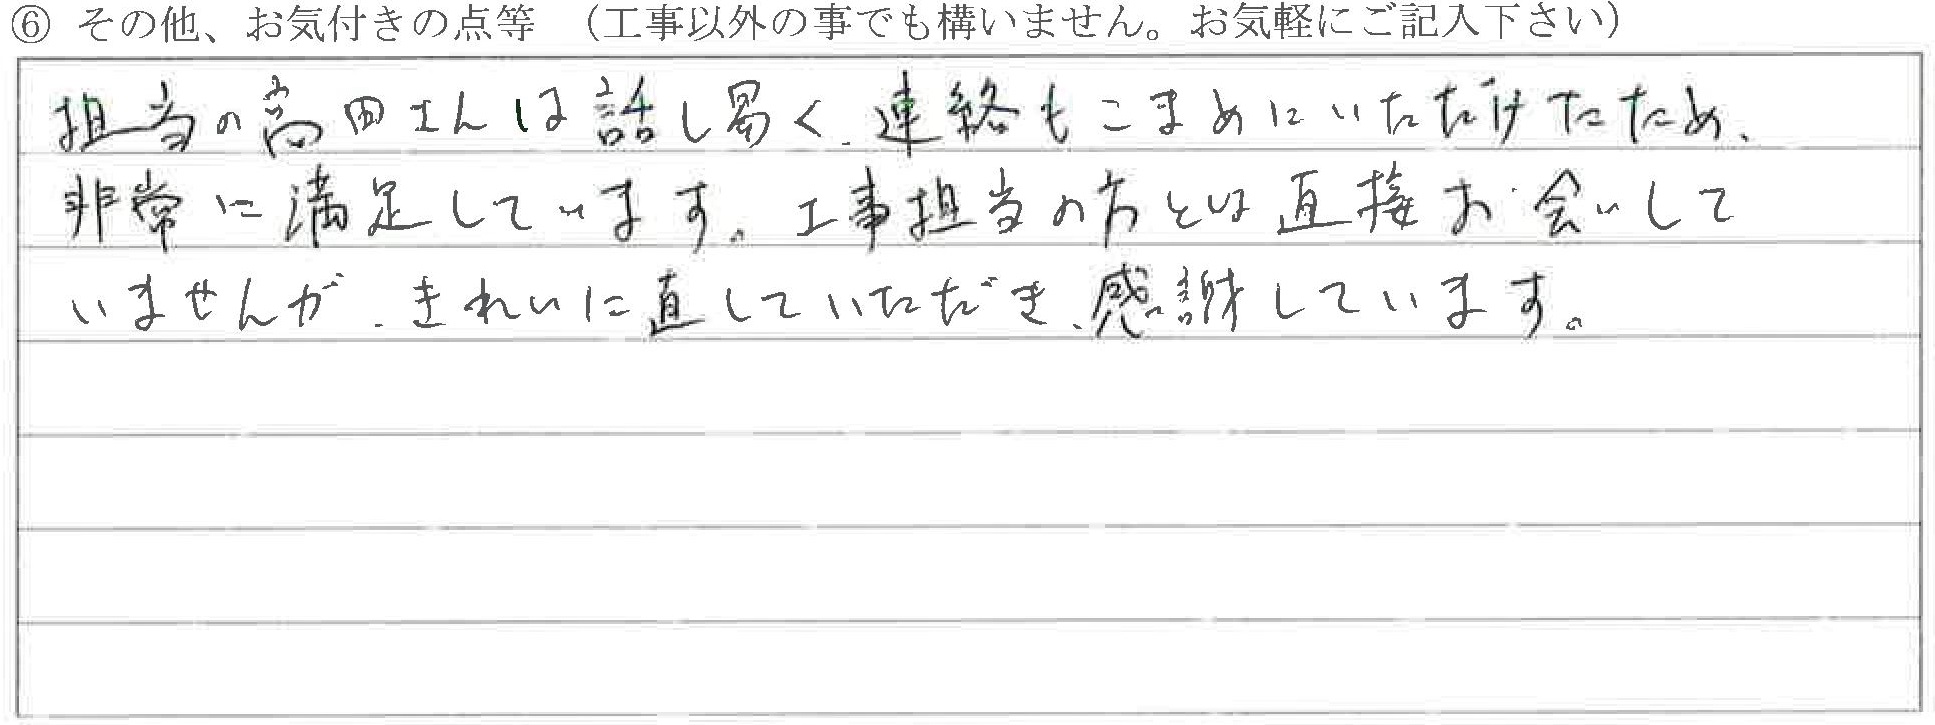 ⑥ その他、お気付きの点等 （工事以外の事でも構いません。お気軽にご記入下さい）
担当の高田さんは話し易く、連絡もこまめにいただけたため、
非常に満足しています。工事担当の方とは直接お会いして
いませんが、きれいに直していただき、感謝しています。